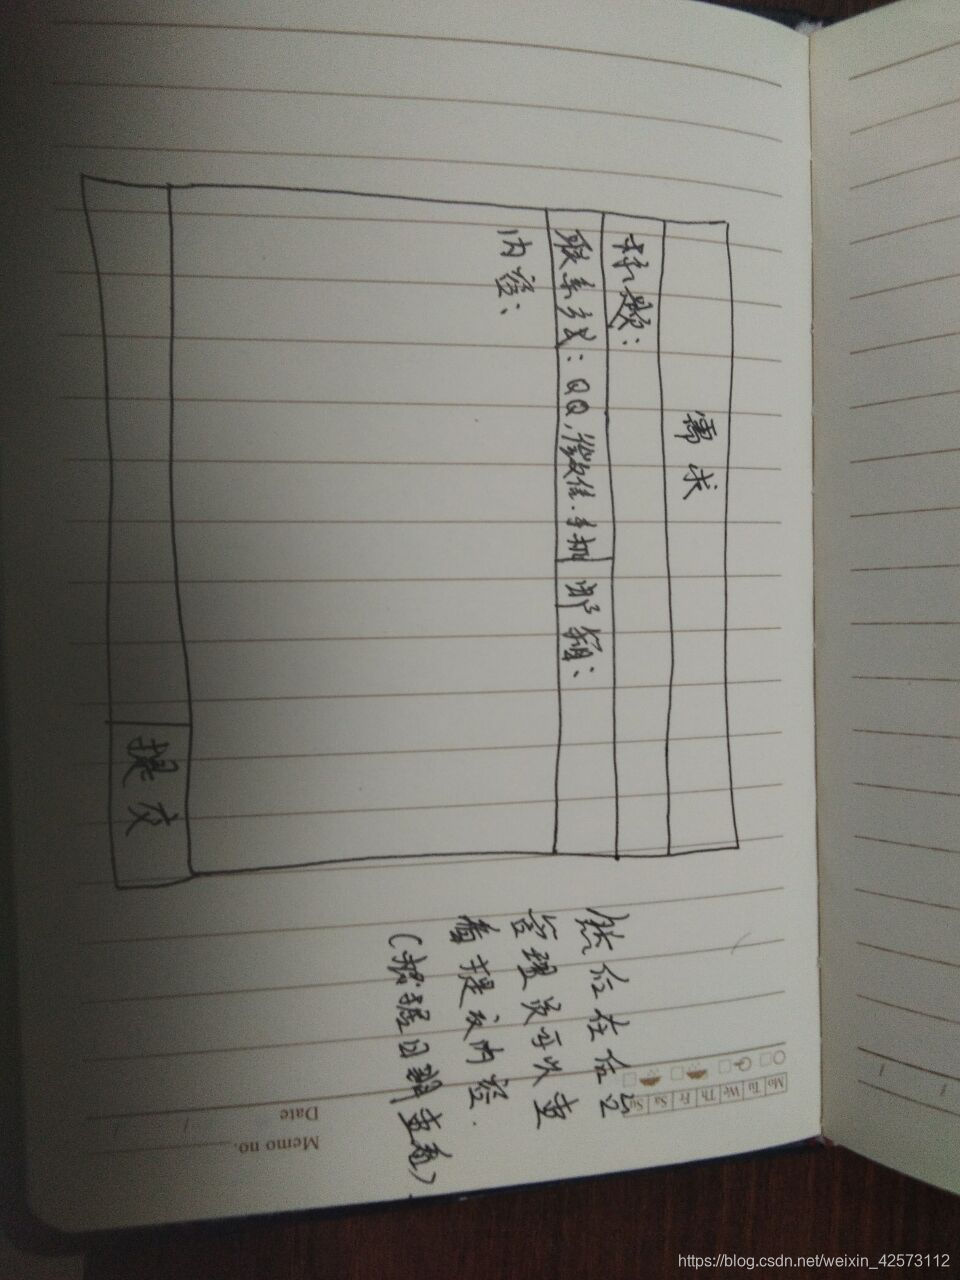 需求
标题:
联系方式:QQ,微信.手机 邮箱:
内容:
提交
然后在后台
管理员可以查
看提交内容.
(根据日期查看)
Mo Tu We Th Fr Sa Su
Memo no.
Date
https://blog.csdn.net/weixin_42573112